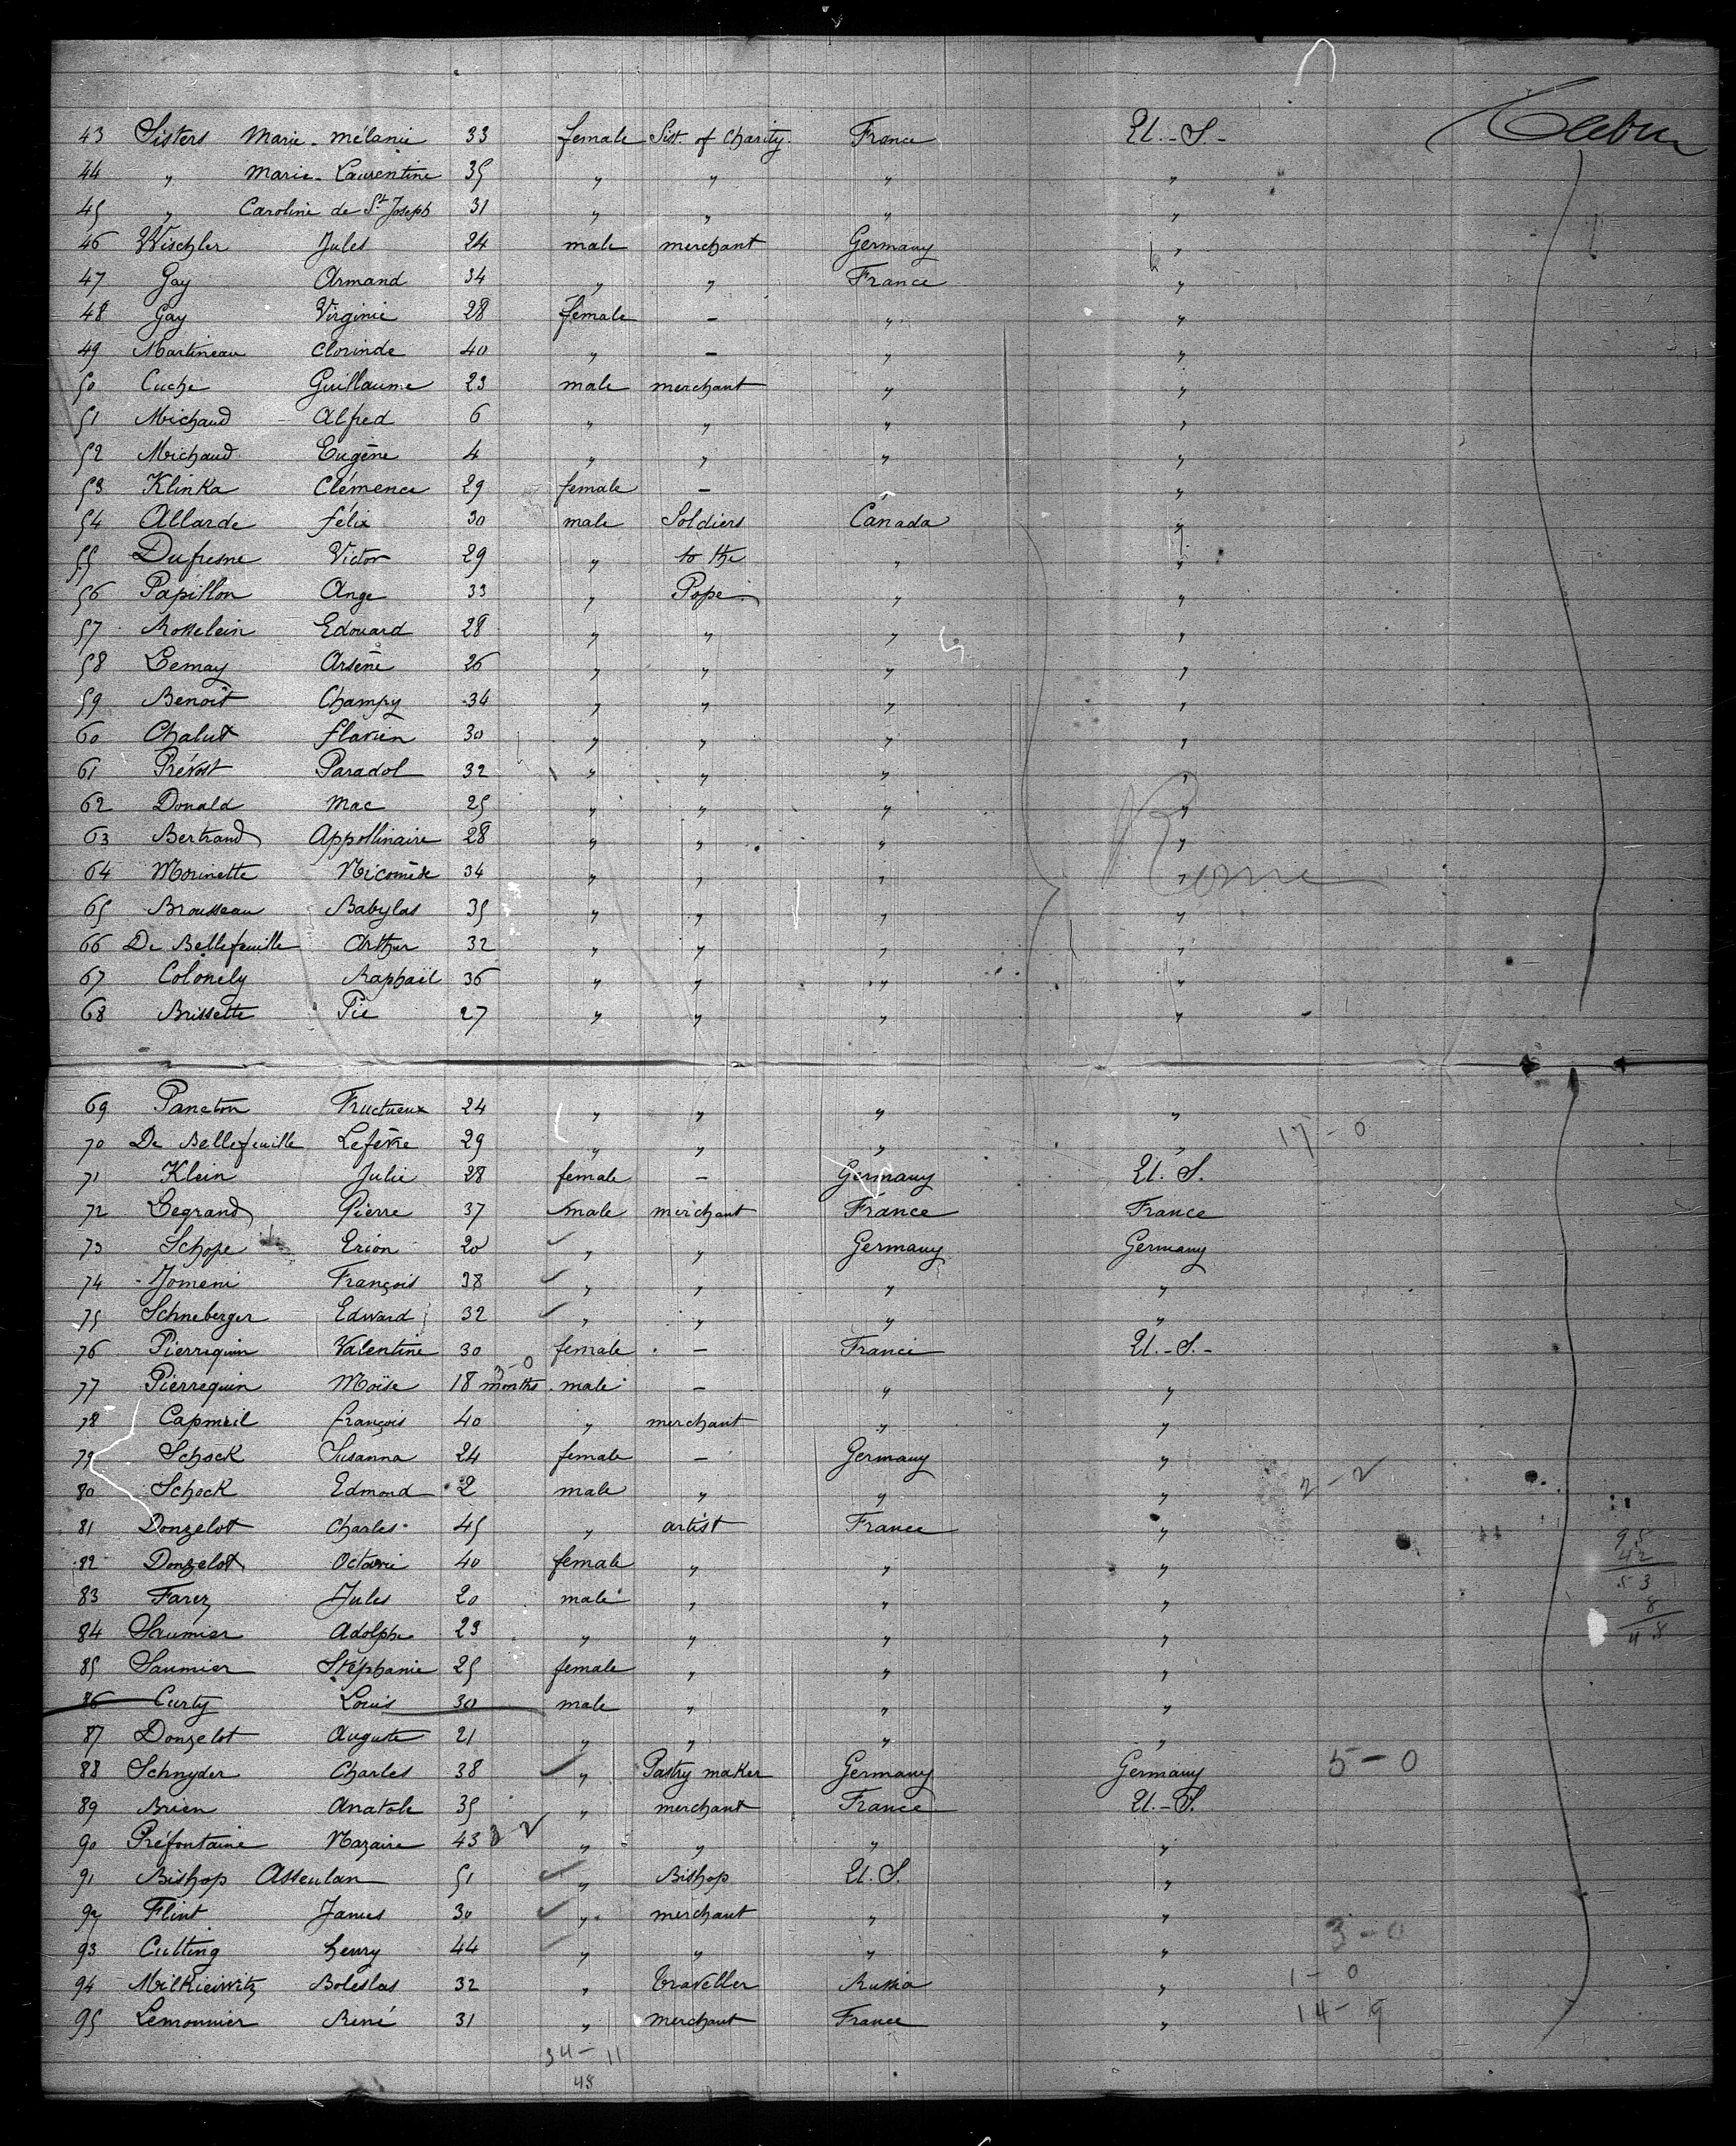 43 Sisters Marie-Mélanie 33 female Sist. of Charity. France U.-S.-
44 " Marie-Laurentine 35 " " " "
45 " Caroline de St Joseph 31 " " " "
46 Wischler Jules 24 male merchant Germany "
47 Gay Armand 34 " " France "
48 Gay Virginie 28 female - " "
49 Martineau Clorinde 40 " - " "
50 Cuche Guillaume 23 male merchant " "
51 Michaud Alfred 6 " " " "
52 Michaud Eugène 4 " " " "
53 Klinka Clémence 29 female - " "
54 Allarde félix 30 male Soldiers Canada "
55 Dufresne Victor 29 " to the " "
56 Papillon Ange 33 " Pope. " "
57 Edouard 28 " " " "
58 Lemay Arsène 26 " " " "
59 Benoit Champy 34 " " " "
60 Chalut flavien 30 " " " "
61 Prévost Paradol 32 " " " "
62 Donald Mac 25 " " " "
63 Bertrand Appollinaire 28 " " " "
Rome
64 Morinette Nicomède 34 " " " "
65 Brousseau Babylas 35 " " " "
66 De Bellefeuille Arthur 32 " " " "
67 Colonely Raphaël 36 " " " "
68 Brissette Pie 27 " " " "
69 Pancton Fructueux 24 " " " "
17-0
70 De Bellefeuille Lefèvre 29 " " " "
71 Klein Julie 28 female - Germany U. S.
72 Legrand Pierre 37 male merchant France France
73 Schope Erion 20 " " Germany Germany
74 Jomeni François 38 " " " "
75 Schneberger Edward 32 " " " "
76 Pierrequin Valentine 30 female - France U.-S.-
3-0
77 Pierrequin Moïse 18 months male - " "
78 Capmeil françois 40 " merchant " "
79 Schock Susanna 24 female - Germany "
80 Schock Edmond 2 male " " " 2-2
81 Donzelot Charles 45 " artist France "
95
42
53
8
45
82 Donzelot Octavie 40 female " " "
83 Farez Jules 20 male " " "
84 Saumier Adolphe 23 " " " "
85 Saumier Stéphanie 25 female " " "
86 Curty Louis 30 male " " "
87 Donzelot Auguste 21 " " " "
88 Schnyder Charles 38 " Pastry maker Germany Germany 5-0
89 Brien Anatole 35 " merchant France U.-S.
90 Préfontaine Nazaire 43 " " " "
91 Bishop 51 " Bishop U.S. "
92 Flint James 30 " merchant " "
93 Cutting henry 44 " " " " 3-0
94 Milkieiwitz Boleslas 32 " Traveller Russia " 1-0
95 Lemonnier René 31 " merchant France " 14-9
34-11
48